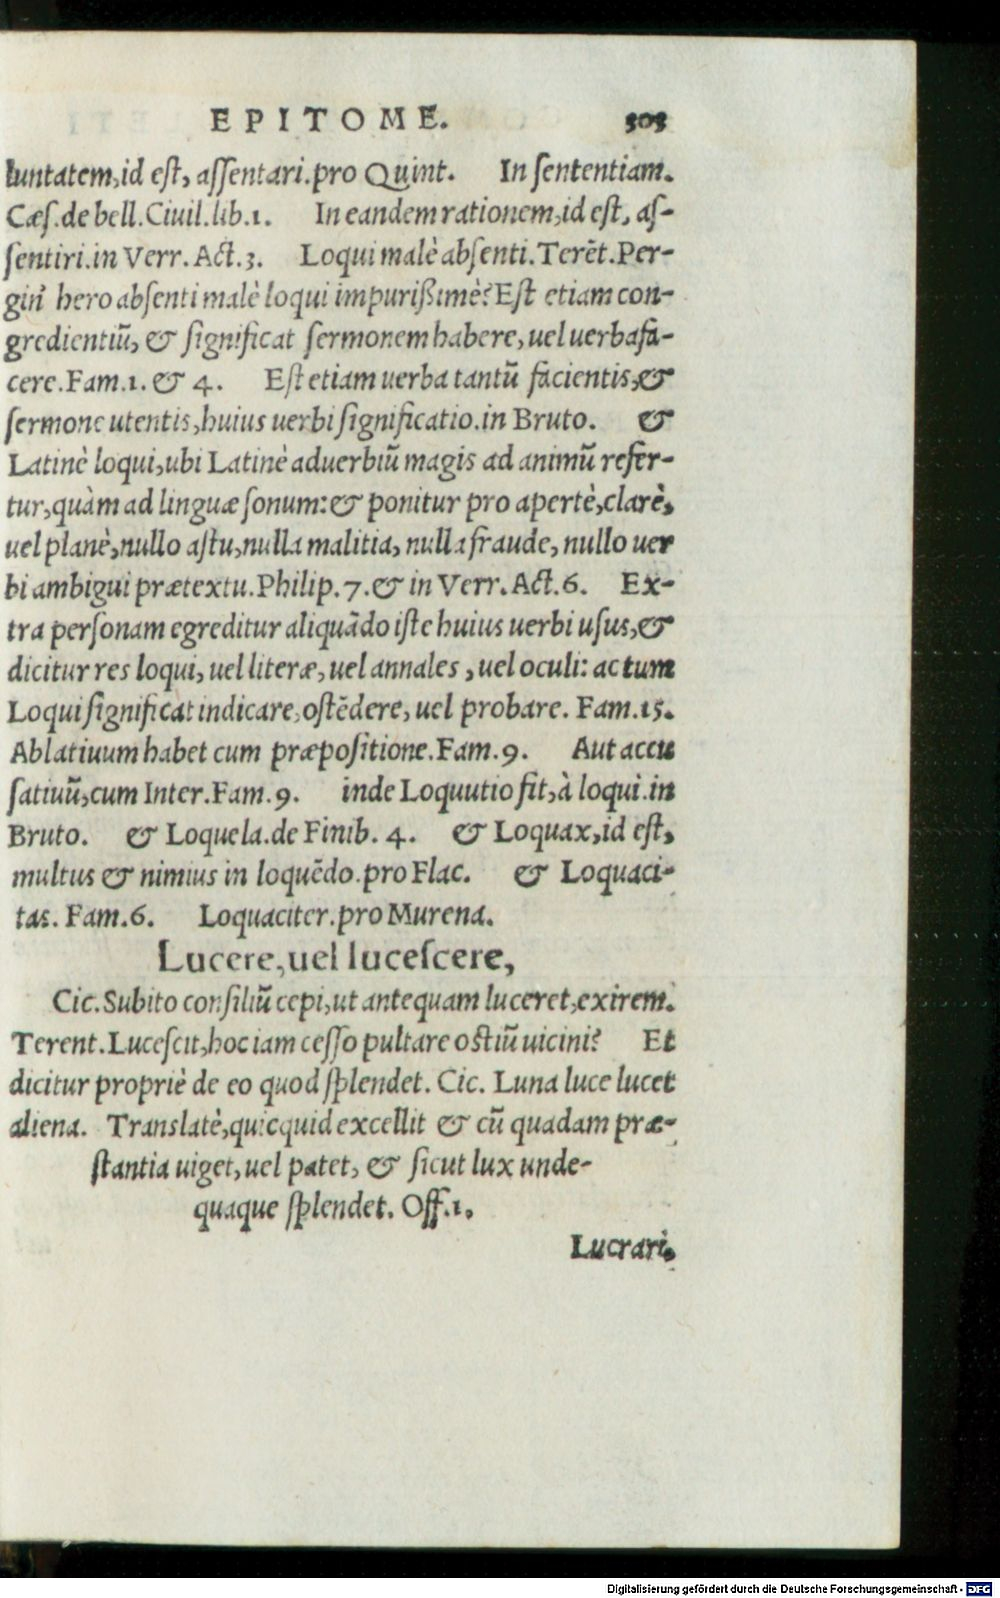 EPITOME. 505
luntatem,id est, assentari.pro Quint. In sententiam.
Cæs.de bell.Ciuil.lib.1. In eandem rationem,id est, as-
sentiri.in Verr. Act.3. Loqui malè absenti.Terēt.Per-
gin' hero absenti malè loqui impurißimè? Est etiam con-
gredientiū, & significat sermonem habere, uel uerba fa-
cere.Fam.1. & 4. Est etiam uerba tantū facientis,&
sermone utentis,huius uerbi significatio.in Bruto. &
Latinè loqui,ubi Latinè aduerbiū magis ad animū refer-
tur,quàm ad linguæ sonum:& ponitur pro apertè,clarè,
uel planè,nullo astu,nulla malitia, nulla fraude, nullo uer
bi ambigui prætextu.Philip.7.& in Verr. Act.6. Ex-
tra personam egreditur aliquādo iste huius uerbi usus,&
dicitur res loqui, uel literæ, uel annales, uel oculi: ac tum
Loqui significat indicare,ostēdere, uel probare. Fam.15.
Ablatiuum habet cum præpositione.Fam.9. Aut accu
satiuū,cum Inter.Fam.9. inde Loquutio fit,à loqui.in
Bruto. & Loquela.de Finib. 4. & Loquax,id est,
multus & nimius in loquēdo.pro Flac. & Loquaci-
tas. Fam.6. Loquaciter.pro Murena.
Lucere,uel lucescere,
Cic.Subito consiliū cepi,ut antequam luceret,exirem.
Terent.Lucescit,hoc iam cesso pultare ostiū uicini? Et
dicitur propriè de eo quod splendet. Cic. Luna luce lucet
aliena. Translatè,quicquid excellit & cū quadam præ-
stantia uiget, uel patet, & sicut lux unde-
quaque splendet. Off.1.
Lucrari,
Digitalisierung gefördert durch die Deutsche Forschungsgemeinschaft - DFG